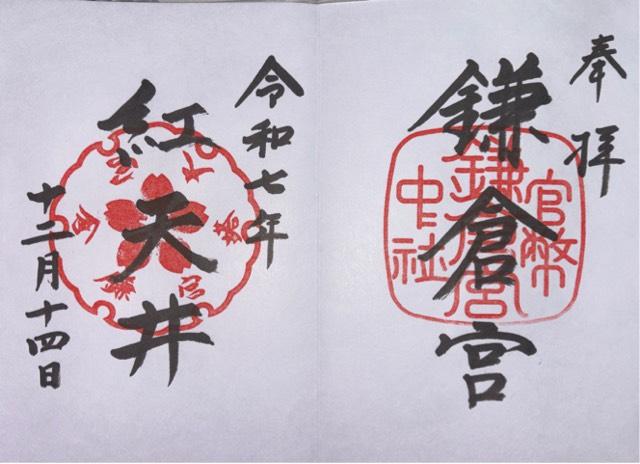 奉拝
鎌倉宮
官幣
鎌倉宮
中社
令和七年
紅天井
十二月十四日